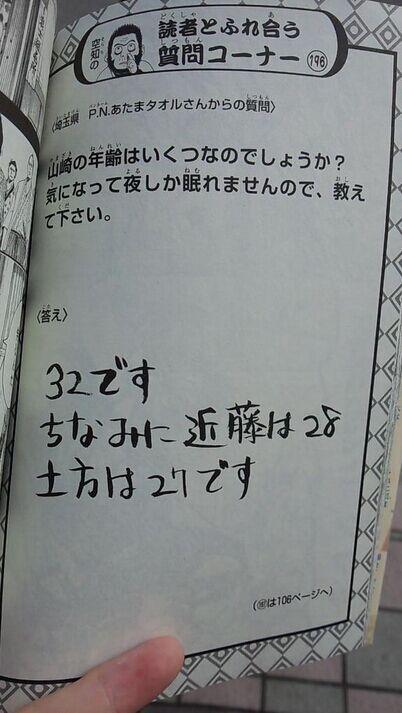 空知の
読者とふれ合う
質問コーナー 196
〈埼玉県 P.N.あたまタオルさんからの質問〉
山崎の年齢はいくつなのでしょうか?
気になって夜しか眠れませんので、教え
て下さい。
〈答え〉
32です
ちなみに近藤は28
土方は27です
は106ページへ)